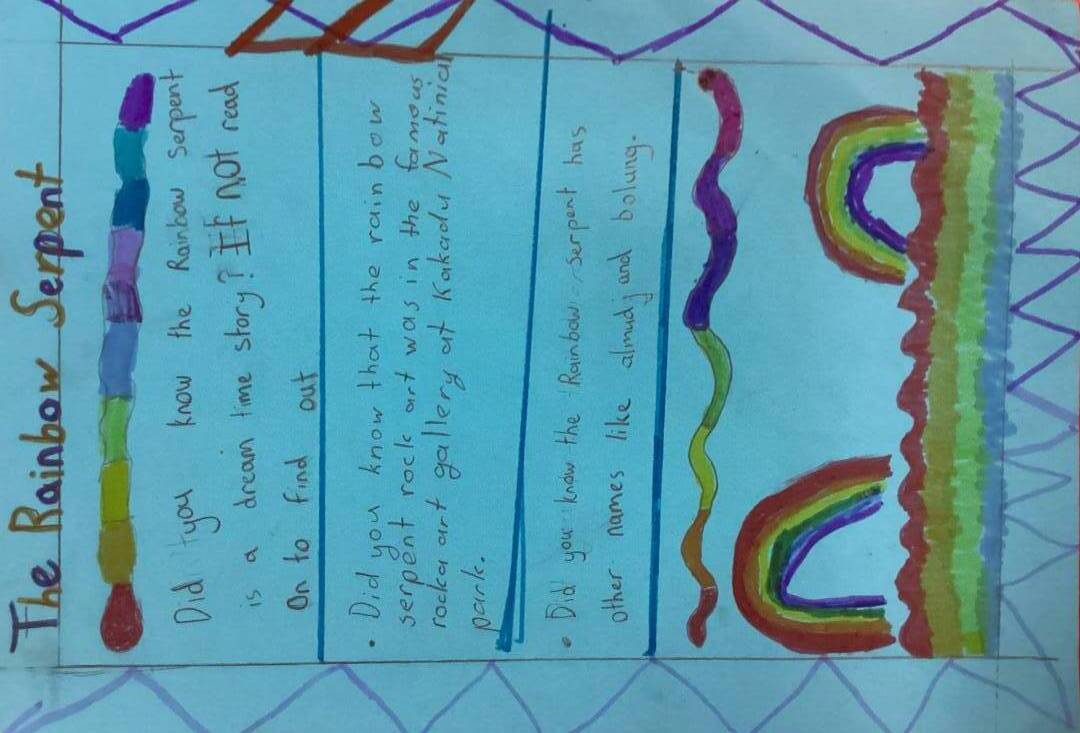 The Rainbow Serpent
Did you know the Rainbow Serpent
is a dream time story? If not read
On to find out
• Did you know that the rainbow
serpent rock art was in the famous
rocka art gallery at Kakadu Natinial
park.
• Did you know the Rainbow serpent has
other names like almudj and bolung.